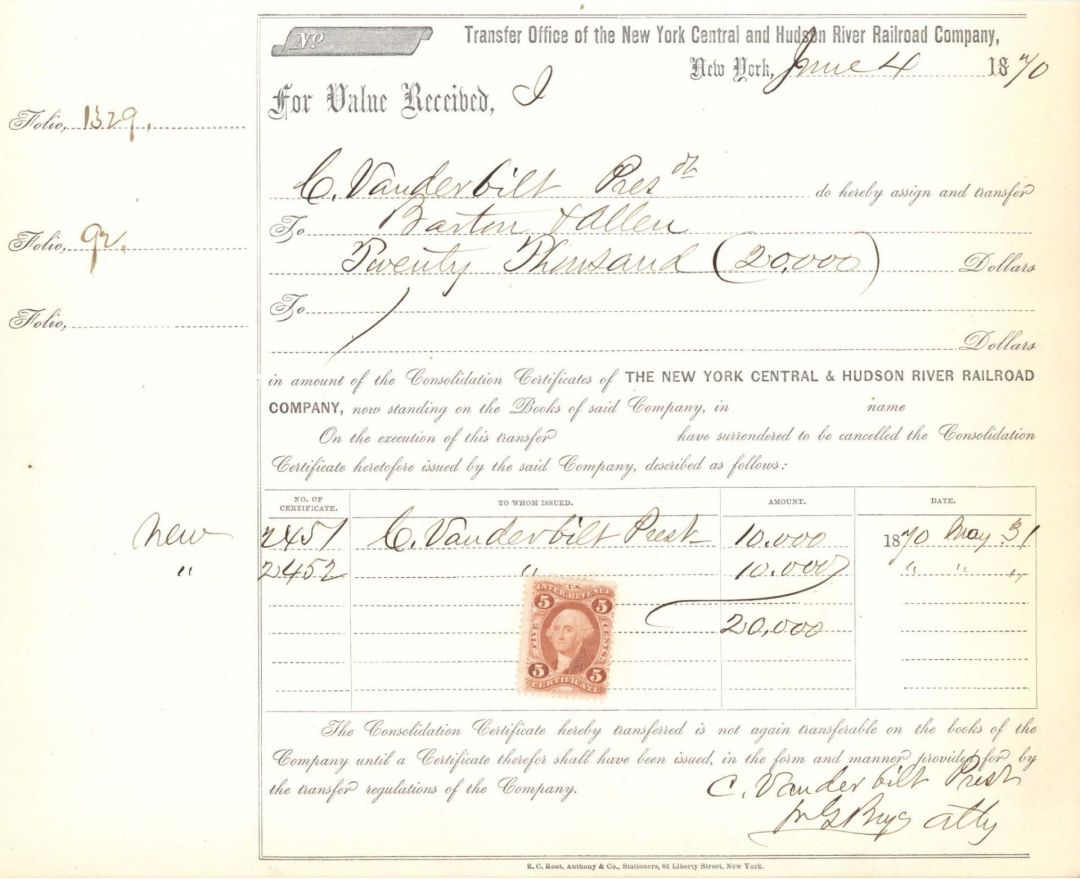 No
Transfer Office of the New York Central and Hudson River Railroad Company,
New York, June 4 1870
For Value Received, I
Folio, 1329.
C. Vanderbilt Prest do hereby assign and transfer
To Barton & Allen
Folio, 92.
Twenty Thousand (20.000) Dollars
To
Folio,
Dollars
in amount of the Consolidation Certificates of THE NEW YORK CENTRAL & HUDSON RIVER RAILROAD
COMPANY, now standing on the Books of said Company, in name
On the execution of this transfer have surrendered to be cancelled the Consolidation
Certificate heretofore issued by the said Company, described as follows:
NO. OF CERTIFICATE. TO WHOM ISSUED. AMOUNT. DATE.
new 2451 C. Vanderbilt Prest 10.000 1870 May. 31
" 2452 " 10.000 " " "
20,000
U.S.
INTER. REVENUE
5 5
FIVE CENTS
5 5
CERTIFICATE
The Consolidation Certificate hereby transferred is not again transferable on the books of the
Company until a Certificate therefor shall have been issued, in the form and manner provided for by
the transfer regulations of the Company.
C. Vanderbilt Prest
atty
R. C. Root, Anthony & Co., Stationers, 62 Liberty Street, New York.